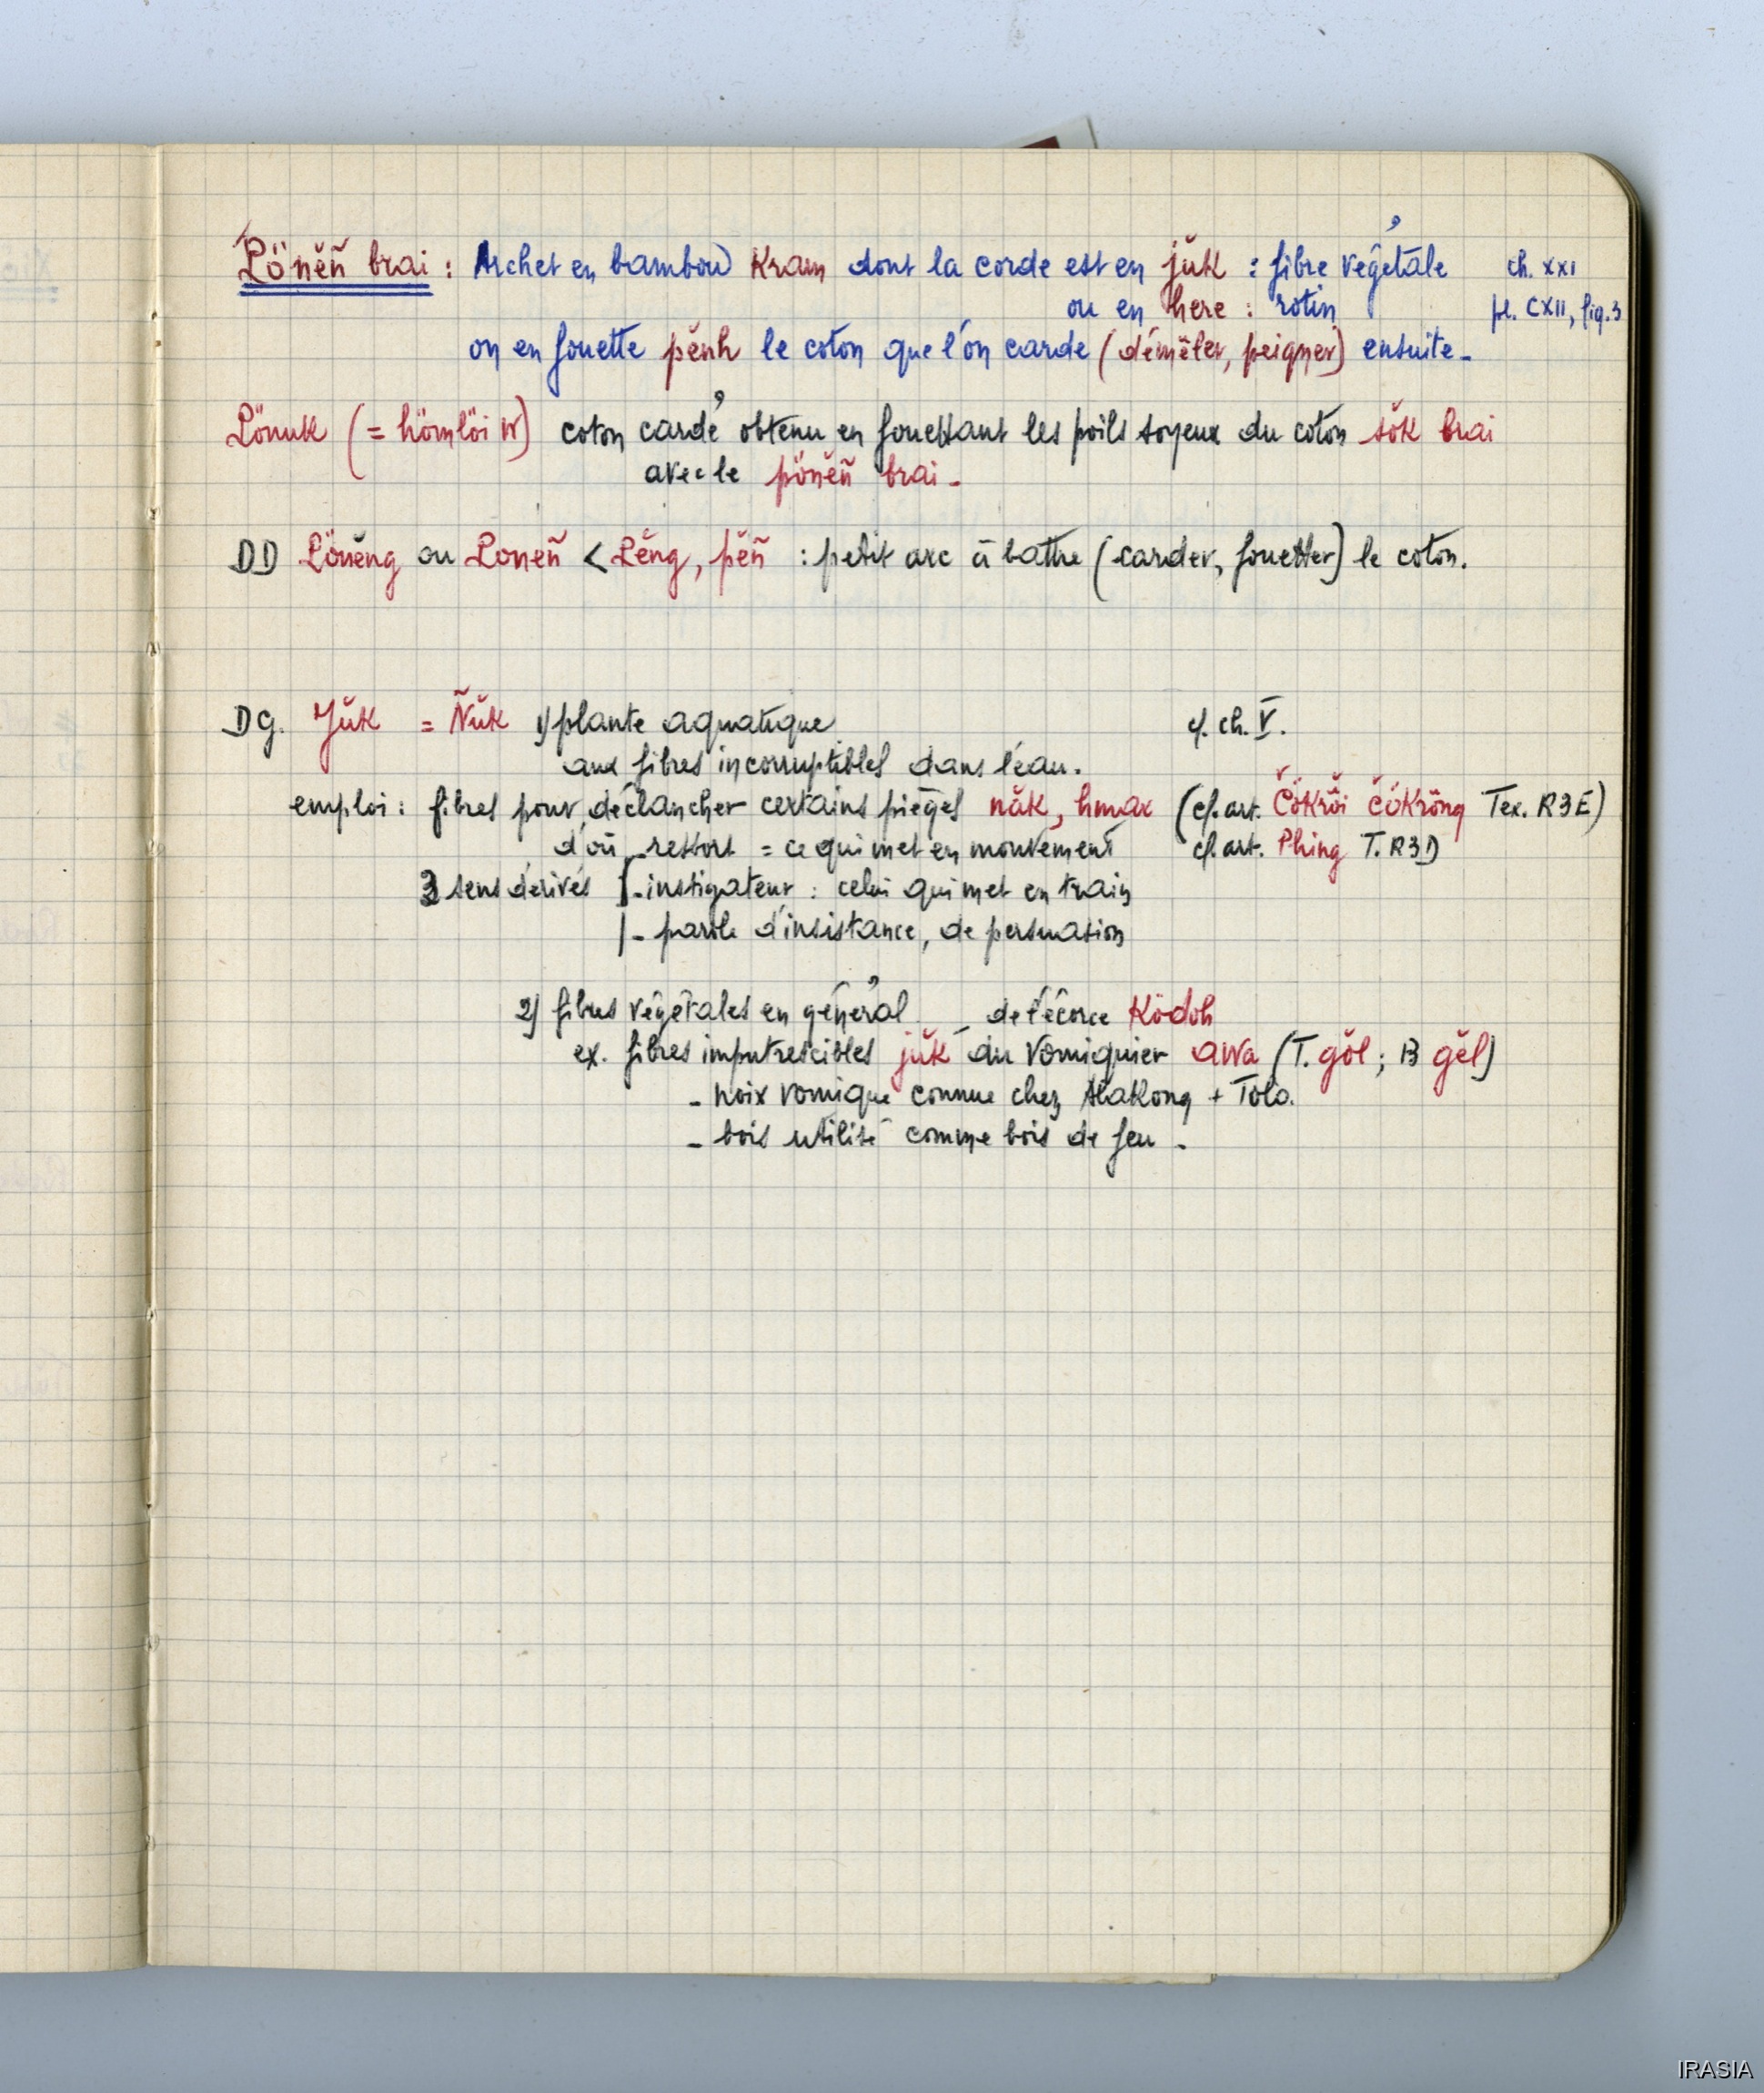 Pönĕñ brai : Archet en bambou Kram dont la corde est en jŭk : fibre végétale ch. XXI
ou en here : rotin pl. CXII, fig.3
on en fouette pĕnh le coton que l'on carde (démêler, peigner) ensuite_
Pönuk (= hömlöi W) coton cardé obtenu en fouettant les poils soyeux du coton sŏk brai
avec le pönĕñ brai_
DD Pönĕng ou Poneñ < Pĕng, pĕñ : petit arc à battre (carder, fouetter) le coton.
Dg. Jŭk = Ñŭk 1) plante aquatique cf. ch. V.
aux fibres incorruptibles dans l'eau.
emploi : fibres pour déclancher certains pièges năk, hmax (cf. art. Čŏkrŏi čŏkrŏng Tex. R3E)
d'où _ ressort = ce qui met en mouvement cf. art. Phing T. R3D
3 sens dérivés _ instigateur : celui qui met en train
_ parole d'insistance, de persuasion
2) fibres végétales en général _ de l'écorce Ködoh
ex. fibres imputrescibles jŭk du vomiquier awa (T. gŏl ; B gĕl)
_ noix vomique connue chez Alakong + Tolo.
_ bois utilisé comme bois de feu _
IRASIA